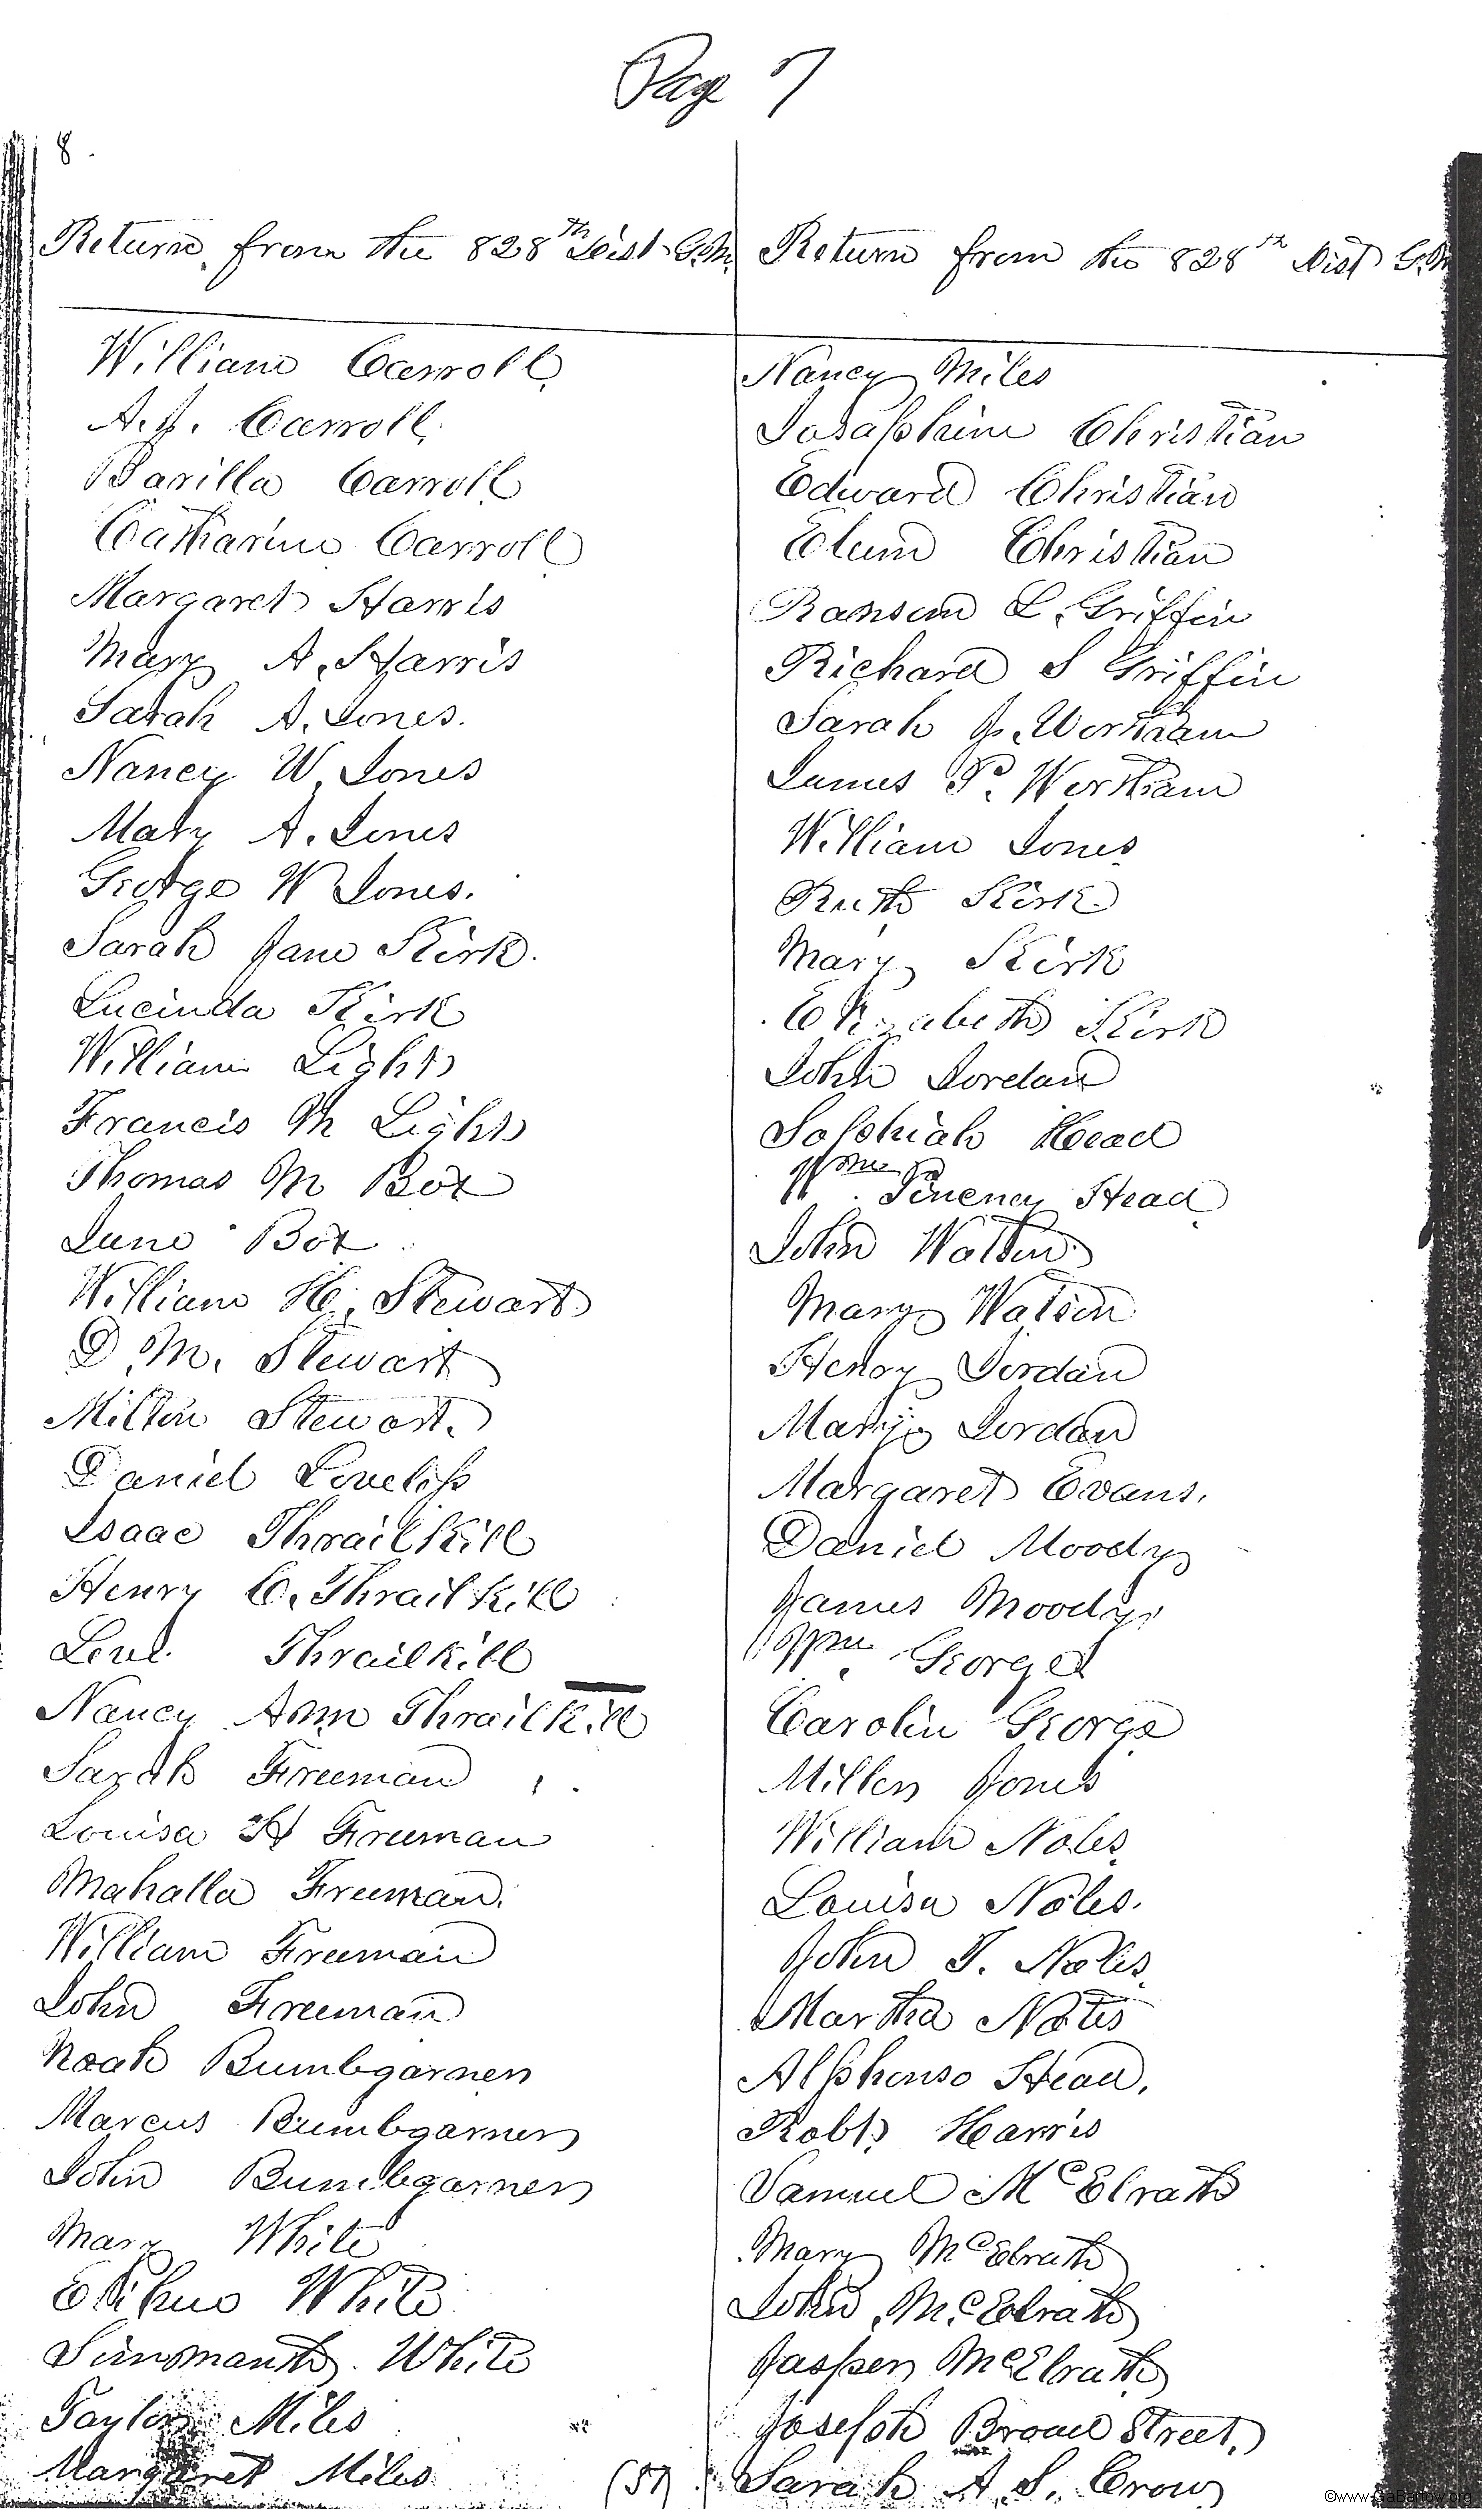 Page 7
8.
Return from the 828th Dist G.M.
William Carroll
A.J. Carroll
Barilla Carroll
Catharine Carroll
Margaret Harris
Mary A. Harris
Sarah A. Jones.
Nancy W. Jones
Mary A. Jones
George W Jones.
Sarah Jane Kirk.
Lucinda Kirk
William Light
Francis M Light
Thomas M Box
June Box
William H. Stewart
D. M. Stewart
Milton Stewart.
Daniel Loveless
Isaac Thrailkill
Henry C. Thrailkill
Levi Thrailkill
Nancy Ann Thrailkill
Sarah Freeman
Louisa H Freeman
Mahalla Freeman.
William Freeman
John Freeman
Noah Bumbgarner
Marcus Bumbgarner
John Bumbgarner
Mary White
Elihue White
White
Taylor Miles
Margaret Miles
(57)
Return from the 828th Dist G.M
Nancy Miles
Josaphine Christian
Edward Christian
Elum Christian
Ransom L. Griffin
Richard S Griffin
Sarah J. Wortham
James P. Wortham
William Jones
Ruth Kirk
Mary Kirk
Elizabeth Kirk
John Jordan
Sophiah Head
Wm Pineney Head
John Watson
Mary Watson
Henry Jordan
Mary Jordan
Margaret Evans.
Daniel Moody
James Moody
Wm George
Carolin George
Miller Jones
William Noles
Louisa Noles.
John T. Noles
Martha Noles
Alphonso Head.
Robt Harris
Samuel McElrath
Mary McElrath
John McElrath
Jasper McElrath
Joseph Broad Street.
Sarah A. S. Crow
©www.GaBartow.org